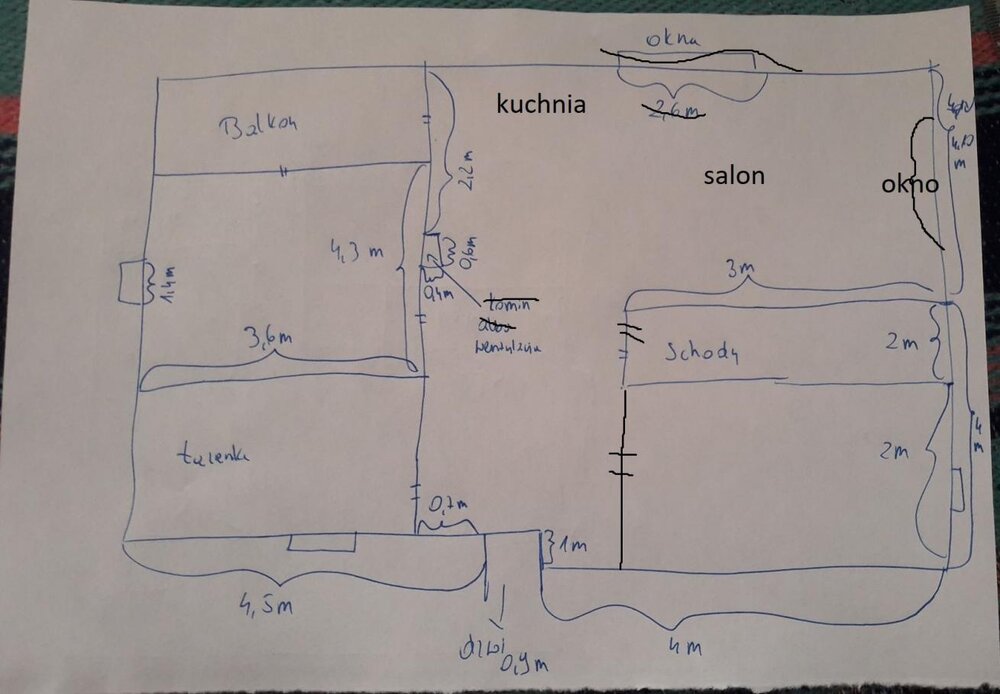 okna
2,6 m
kuchnia
Balkon
2,2 m
4,10
m
salon
okno
4,3 m
0,6m
1,4m
0,4m
3m
komin
albo
wentylacja
3,6m
Schody
2m
łazienka
2m
4
m
0,7m
1m
4,5m
4m
drzwi
0,9m